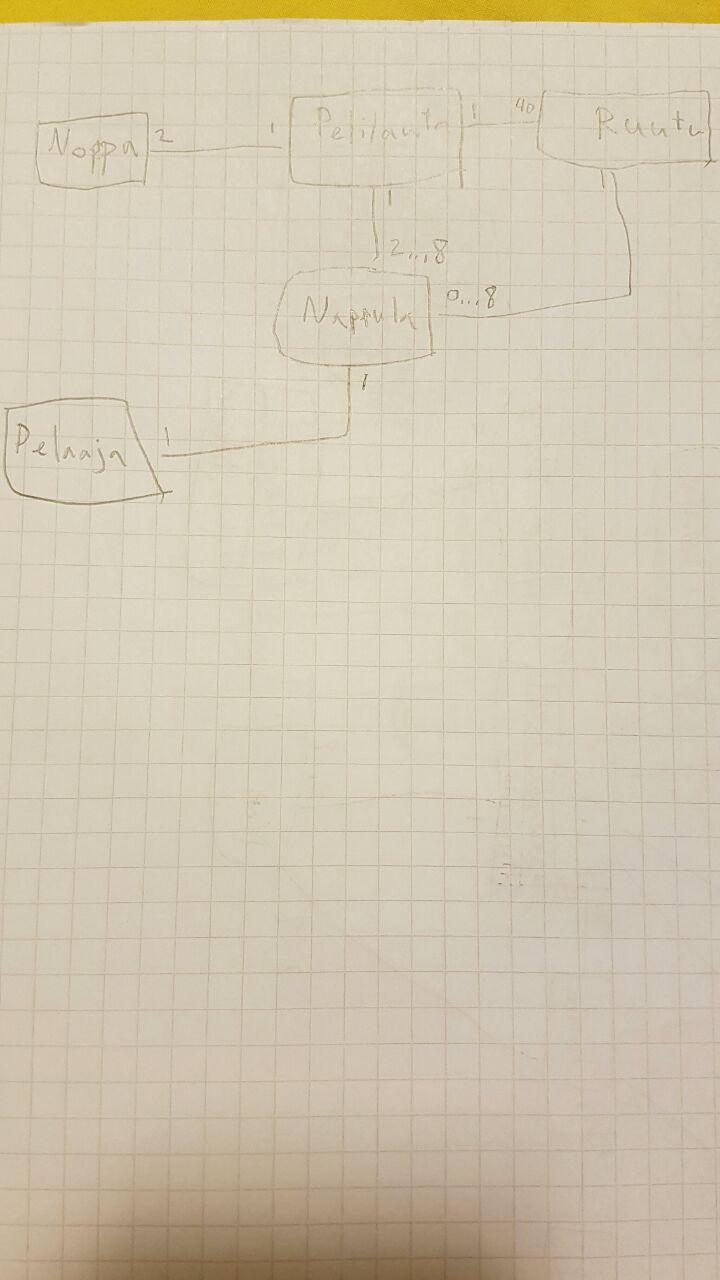 Noppa 2 1 Pelilauta 1 40 Ruutu
1 1
2...8
Nappula 0...8
1
Pelaaja 1